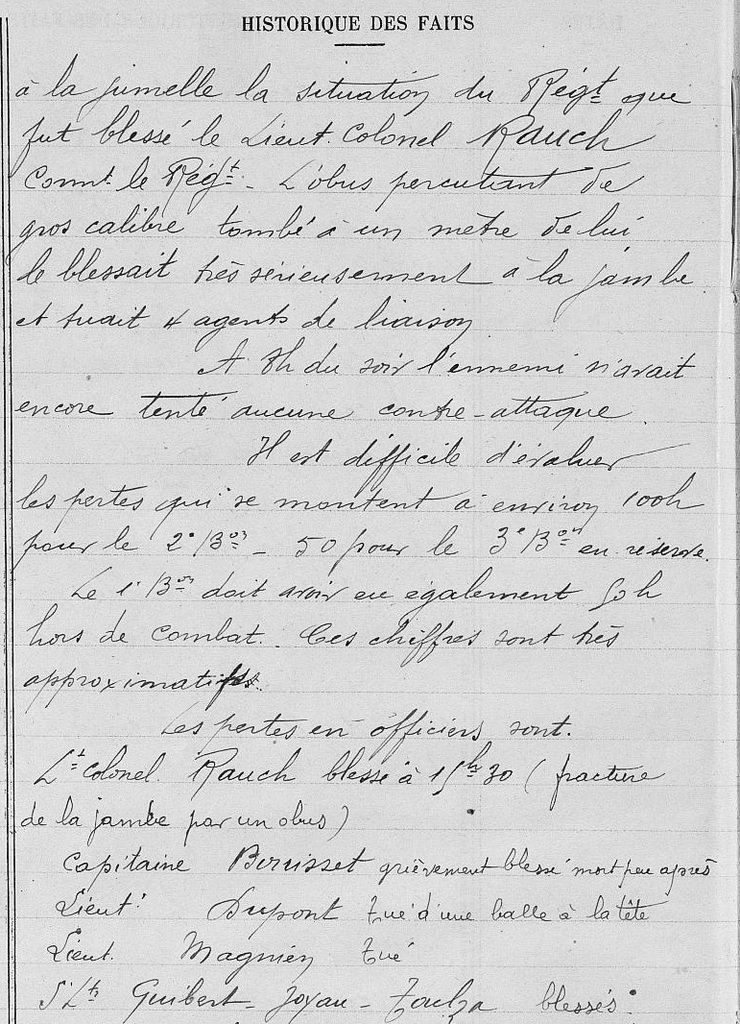 HISTORIQUE DES FAITS
à la jumelle la situation du Régt que
fut blessé le Lieut. Colonel Rauch
Commt le Régt - L'obus percutant de
gros calibre tombé à un mètre de lui
le blessait très sérieusement à la jambe
et tuait 4 agents de liaison
A 8h du soir l'ennemi n'avait
encore tenté aucune contre-attaque
Il est difficile d'évaluer
les pertes qui se montent à environ 100h
pour le 2e Bon - 50 pour le 3e Bon en réserve.
Le 1er Bon doit avoir eu également 50h
hors de combat. Ces chiffres sont très
approximatifs.
Les pertes en officiers sont.
Lt Colonel. Rauch blessé à 15h30 (fracture
de la jambe par un obus)
Capitaine grièvement blessé mort peu après
Lieut. Dupont tué d'une balle à la tête
Lieut. Magnien tué
S/Lts Guibert - Joyau - blessés.